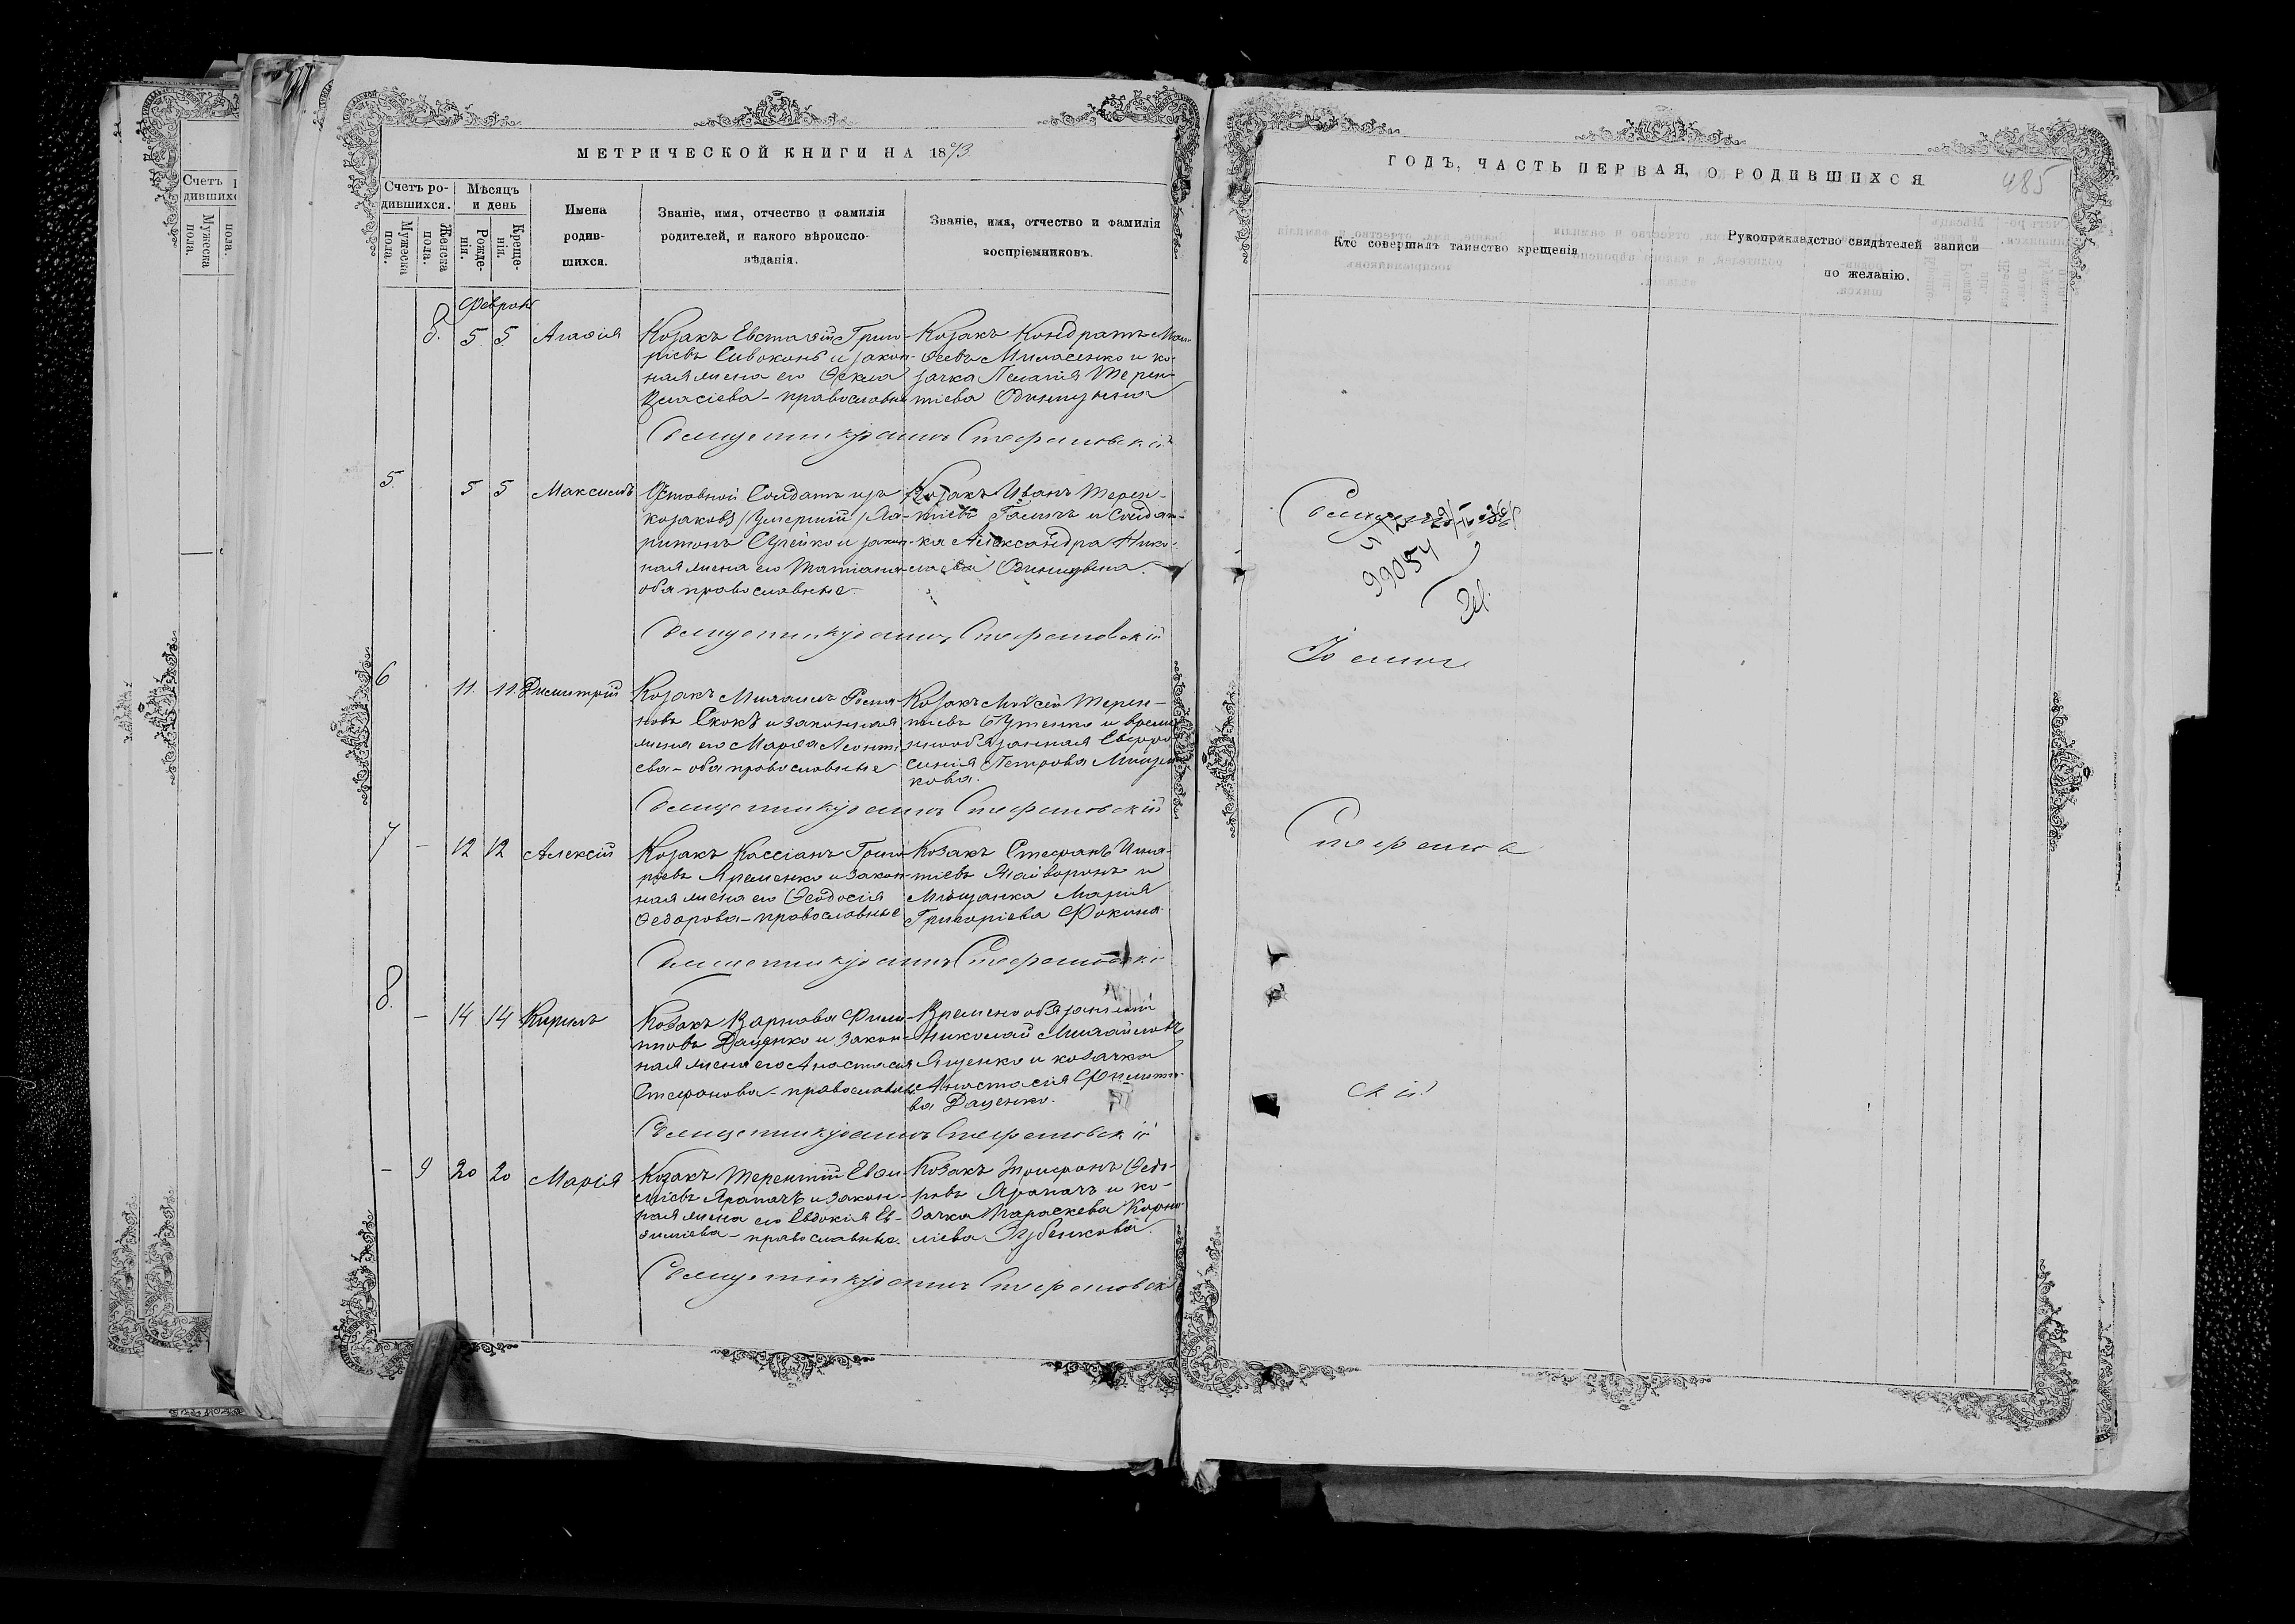 МЕТРИЧЕСКОЙ КНИГИ НА 1873
Счетъ ро-
дившихся.
Мужеска
пола.
Женска
пола.
Мѣсяцъ
и день
Рожде-
нія.
Креще-
нія.
Имена
родив-
шихся.
Званіе, имя, отчество и фамилія
родителей, и какого вѣроиспо-
вѣданія.
Званіе, имя, отчество и фамилія
воспріемниковъ.
8. 5 5 Агафія
Козакъ Евстафій Григо-
ріевъ Сивоконь и закон-
ная жена его Ѳекла
Власіева - православны
Козакъ Кондратъ
и ко-
зачка Пелагія Терен-
тіева Одинцувна
Священникъ Іоаннъ Стефановскій
5. 5 5 Максимъ
Отставной Солдатъ изъ
козаковъ /умершій/ Ха-
ритонъ и закон-
ная жена его Татіана
оба православные
Козакъ Иванъ Терен-
тіевъ и Солдат-
ка Александра Нико-
лаева Одинцувна.
Священникъ Іоаннъ Стефановскій
6 11. 11. Димитрій
Козакъ Михаилъ Рома-
новъ Скокъ и законная
жена его Марѳа Леонті
ева - оба православные
Козакъ Моѵсей Терен-
тіевъ Бутенко и време
ннообязанная Евфро
синія Петрова
кова.
Священникъ Іоаннъ Стефановскій
7 - 12 12 Алексій
Козакъ Кассіанъ Григо
ріевъ Яременко и закон-
ная жена его Ѳеодосія
Ѳедорова - православные
Козакъ Стефанъ Игна-
тіевъ Майворонъ и
Мѣщанка Марія
Григоріева Фокина
Священникъ Іоаннъ Стефановскій
8. - 14 14 Кирилъ
Козакъ Варнава Фили-
пповъ Даценко и закон-
ная жена его Анастасія
Стефанова - православные
Временнообязанный
Николай Михайловъ
Яценко и козачка
Анастасія Филиппо-
ва Даценко.
Священникъ Іоаннъ Стефановскій
- 9 20 20 Марія
Козакъ Терентій
Ярапачъ и закон-
ная жена его Евдокія Ев-
фиміева - православные.
Козакъ Трифонъ Ѳедо-
ровъ Ярапачъ и ко-
зачка Параскева Корни
ліева Зубенкова.
Священникъ Іоаннъ Стефановскій
ГОДЪ, ЧАСТЬ ПЕРВАЯ, О РОДИВШИХСЯ
485
Кто совершалъ таинство крещенія
Рукоприкладство свидѣтелей записи
по желанію.
99054
Іоаннъ
Стефано
скій
Счетъ
дившихс
Мужеска
пола.
пола.